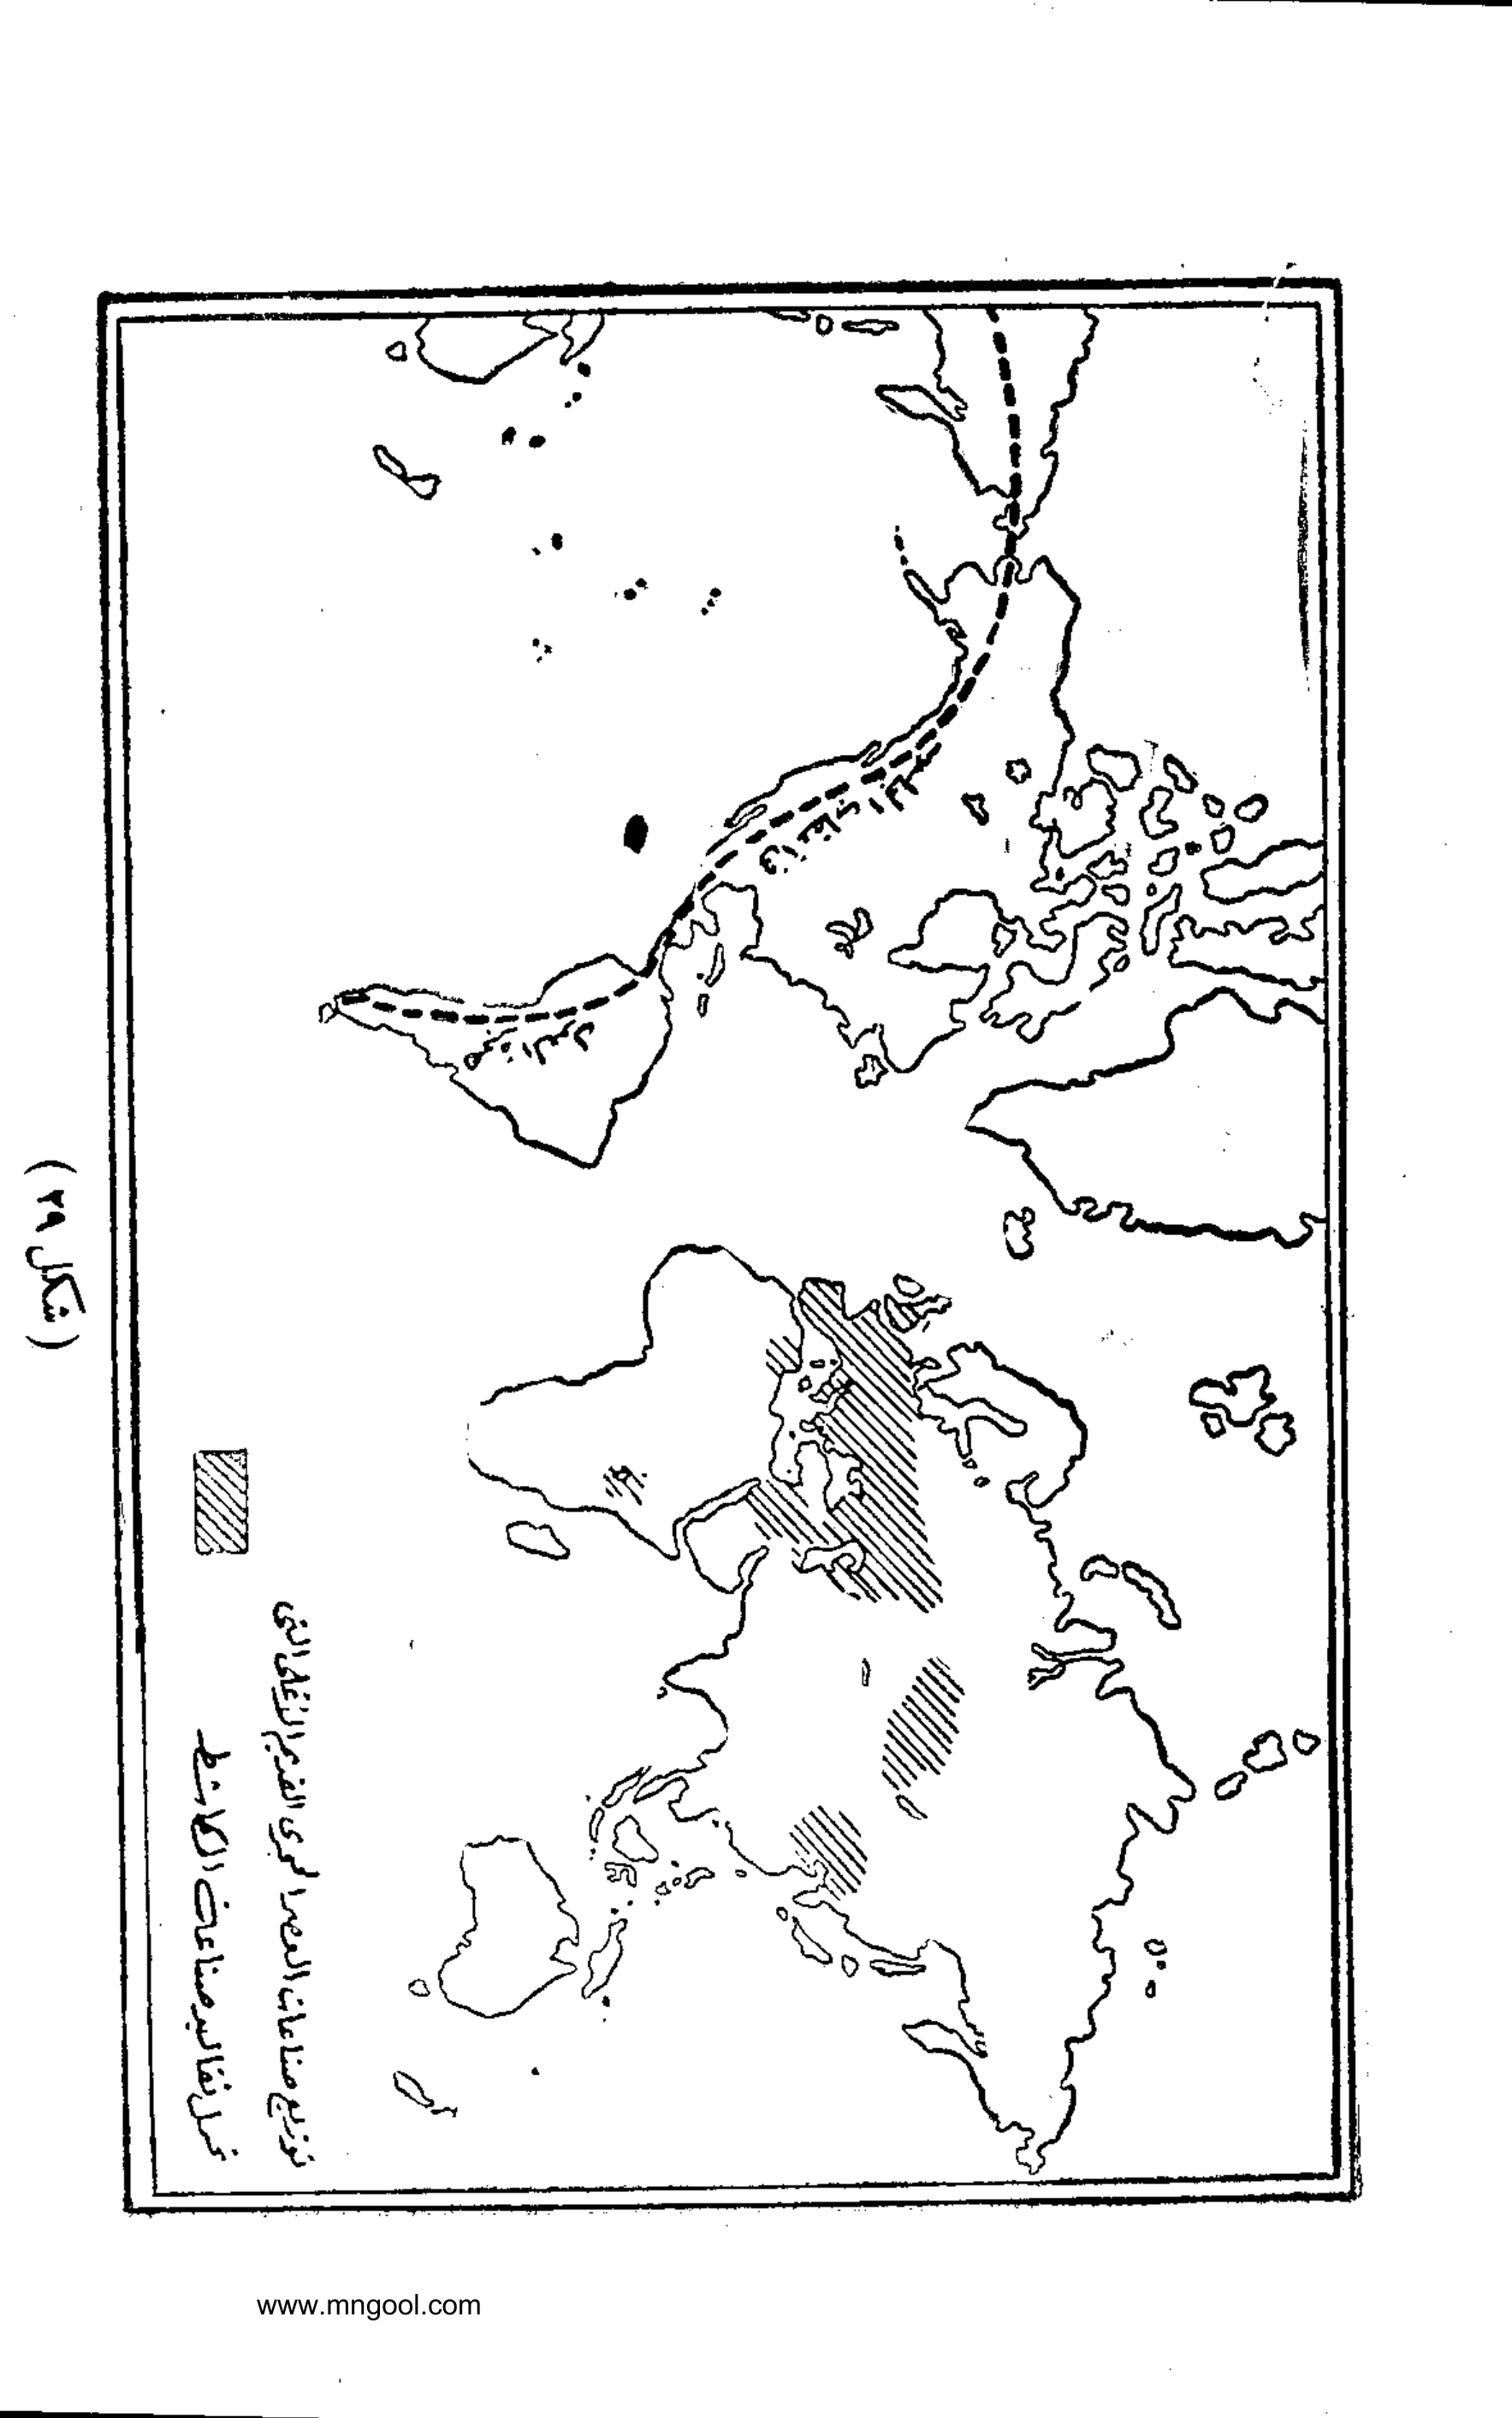 توزيع صناعات العصر الحجرى القديم الأعلى التى
تمثل تقاليد صناعات المكاشط
( شكل ٢٩ )
www.mngool.com